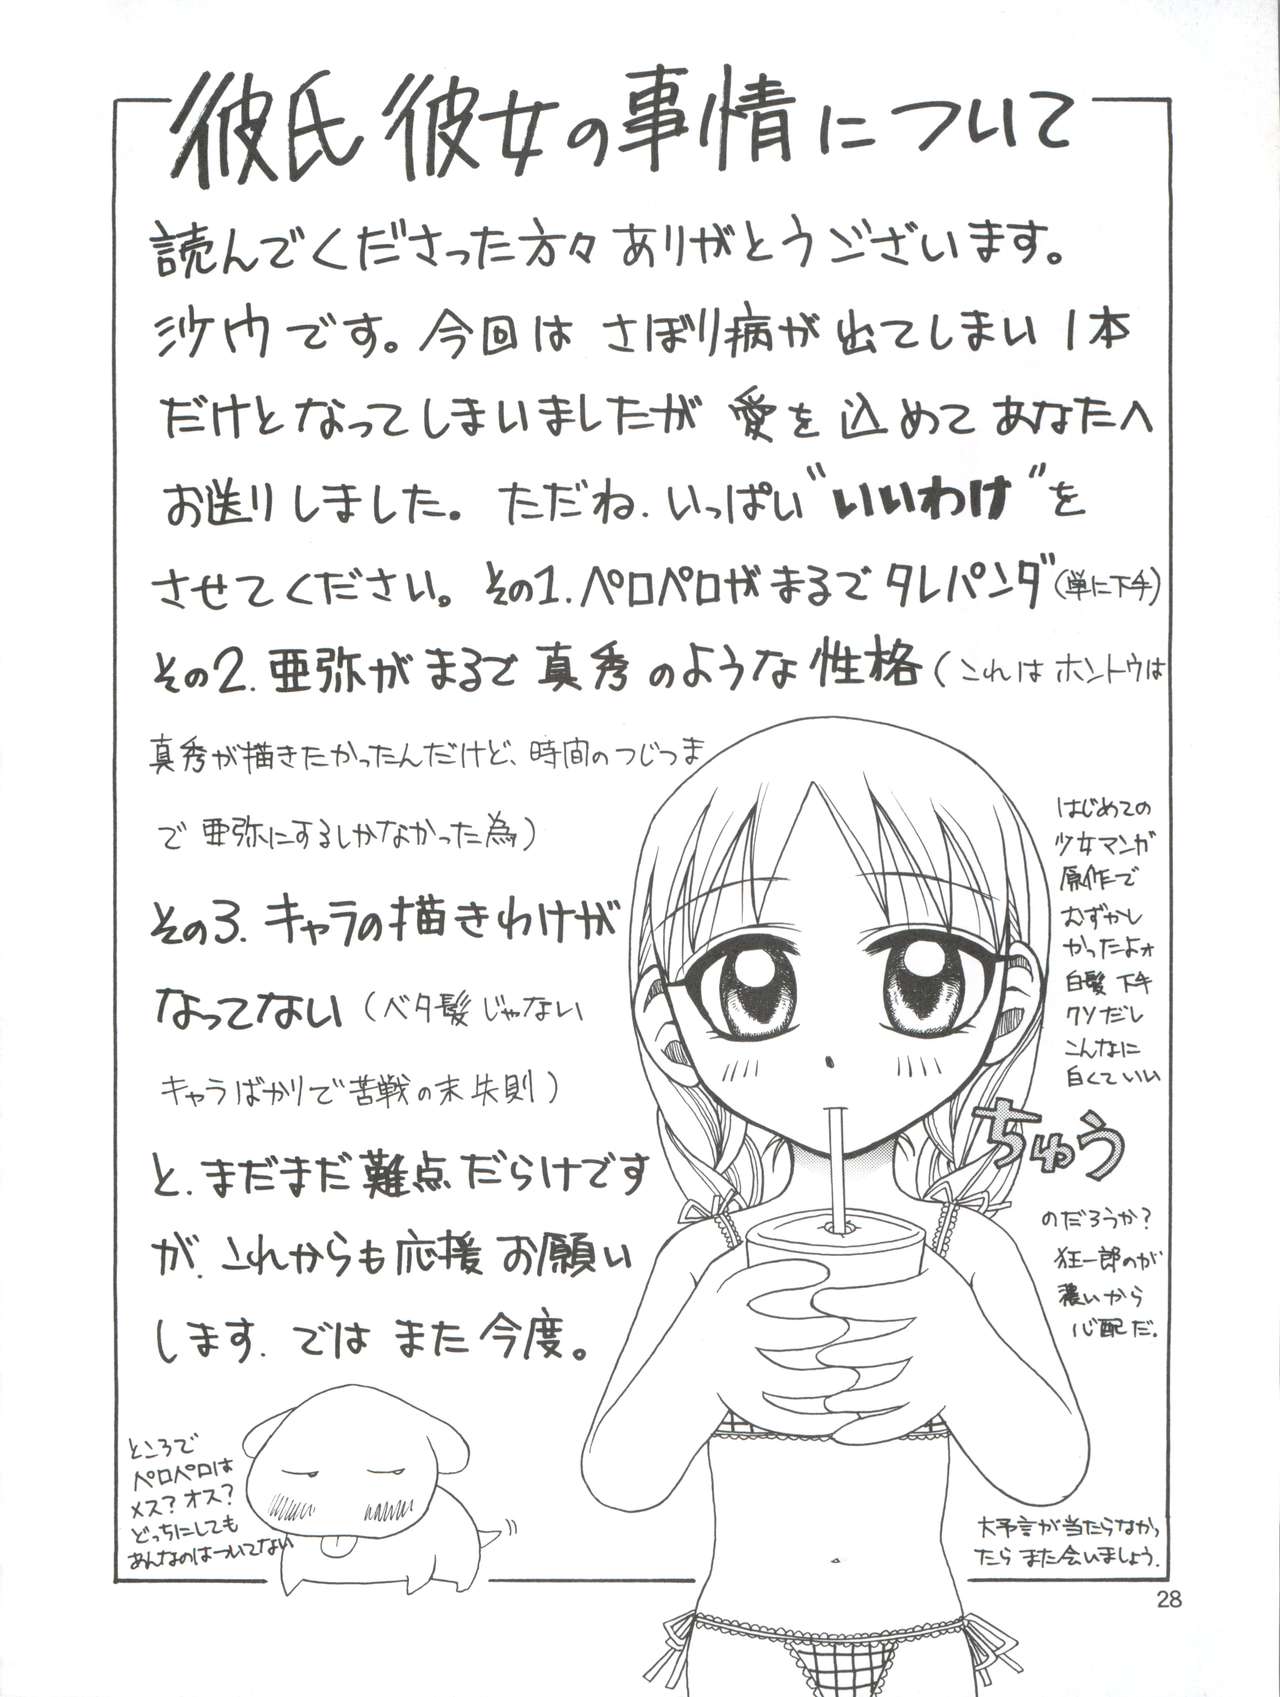 彼氏彼女の事情について
読んでくださった方々ありがとうございます。
沙ケウです。今回は さぼり病が出てしまい1本
だけとなってしまいましたが 愛を込めてあなたへ
お送りしました。ただね.いっぱい"いいわけ"を
させてください。その1.ペロペロがまるでタレパンダ(単に下手)
その2.亜弥がまるで真秀のような性格(これはホントウは
真秀が描きたかったんだけど、時間のつじつま
で亜弥にするしかなかった為)
その3.キャラの描きわけが
なってない(ベタ髪じゃない
キャラばかりで苦戦の末失則)
と.まだまだ難点だらけです
が.これからも応援お願い
します.ではまた今度。
はじめての
少女マンガ
原作で
むずかし
かったよォ
白髪下手
クソだし
こんなに
白くていい
ちゅう
のだろうか?
狂一郎のが
濃いから
心配だ.
ところで
ペロペロは
メス?オス?
どっちにしても
あんなのはついてない
大予言が当たらなかっ
たらまた会いましょう.
28